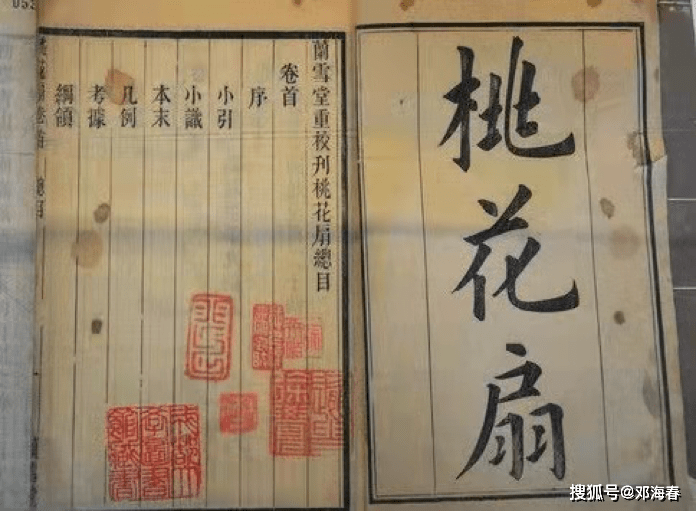 桃花扇
蘭雪堂重校刊桃花扇總目
卷首
序
小引
小識
本末
凡例
考據
綱領
搜狐号@邓海春